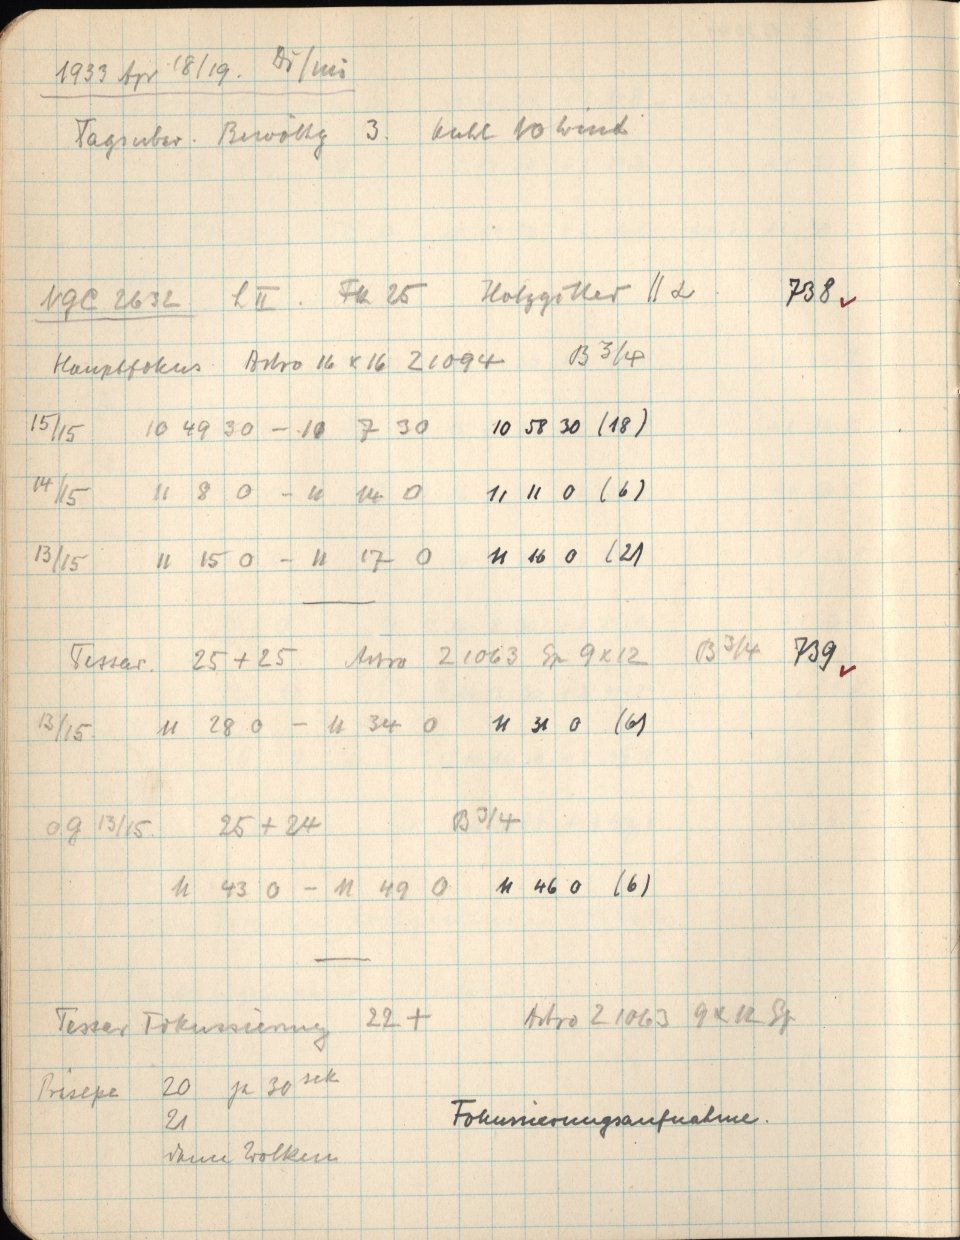 1933 Apr 18/19. Di/Mi
Tagsüber. Bewölkg 3. kühl NO Wind
NGC 2632 L II. Fk 25 Holzgitter || α 738 ✓
Hauptfokus Astro 16 x 16 Z 1094 B 3/4
15/15 10 49 30 – 11 7 30 10 58 30 (18)
14/15 11 8 0 – 11 14 0 11 11 0 (6)
13/15 11 15 0 – 11 17 0 11 16 0 (2)
Tessar. 25 + 25 Astro Z 1063 Gp 9 x 12 B 3/4 739 ✓
13/15 11 28 0 – 11 34 0 11 31 0 (6)
OG 13/15 25 + 24 B 3/4
11 43 0 – 11 49 0 11 46 0 (6)
Tessar Fokussierung 22 + Astro Z 1063 9 x 12 Gp
Präsepe 20 je 30 sek
21 Fokussierungsaufnahme.
dann Wolken